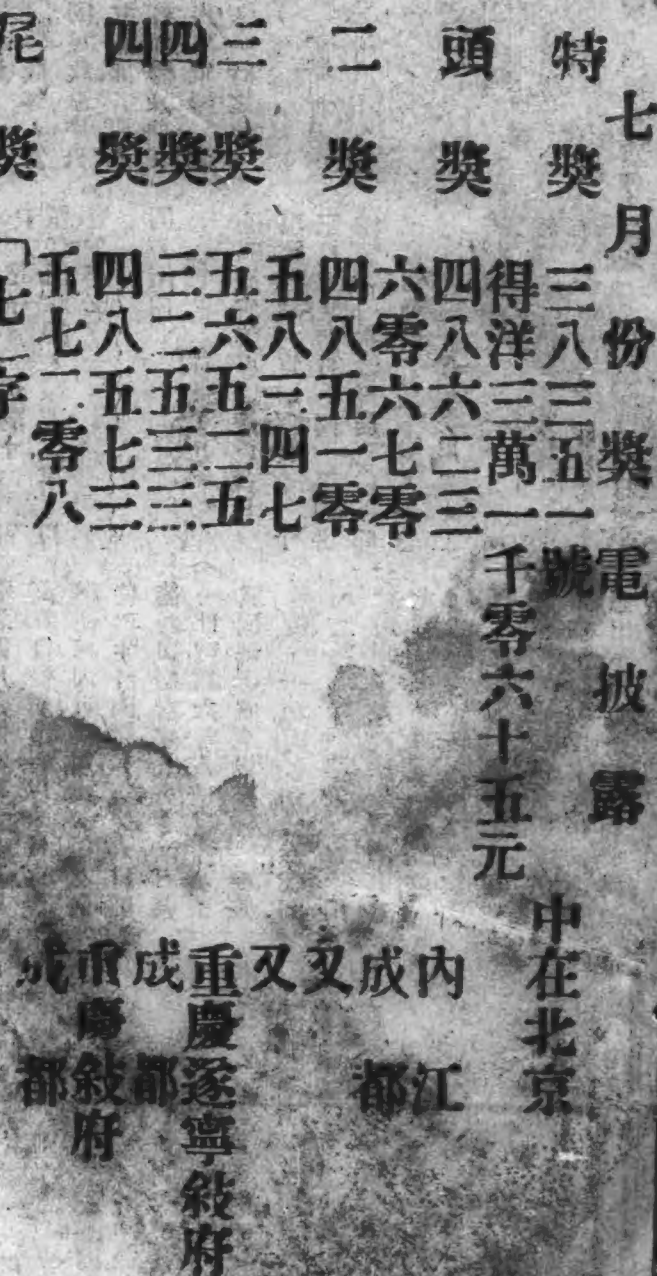 七月份獎電披露
特獎 三八三五一號 中在北京
得洋三萬一千零六十五元
頭獎 四八六二三 內江
六零六七零 成都
二獎 四八五一零 又
五八三四七 又
三獎 五六五二五 重慶遂寧敍府
四獎 三二五三三 成都
四獎 四八五七三 重慶敍府
五七一零八 成都
尾獎 「七」字